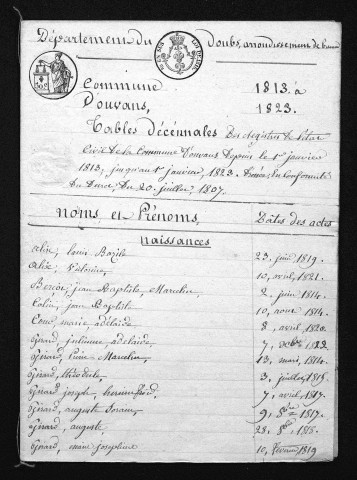 Département du Doubs, arrondissement de
Commune 1813. à
D'ouvans, 1823.
Tables décénnales Des Registres de l'état
Civil de la Commune D'ouvans Depuis le 1er janvier
1813, jusqu'au 1er janvier, 1823. Dressée En Conformité
Du Décret, Du 20. juillet, 1807.
noms, et Prénoms, Dates des actes
naissances
alix, louis Bazile 23. juin 1819.
alix, Victorine, 10, avril, 1821.
jean Baptiste, Marcelin 2, juin 1814.
Colin, jean Baptiste 10, aout 1814.
marie adelaide 8, avril, 1820.
Girard, julienne adelaide 7, 1822
Girard, Marcelin, 13, mai, 1814.
Girard, théodule 3, juillet, 1815.
Girard, joseph, 7, avril, 1817.
Girard, auguste 9, 1817.
Girard, auguste, 28, 1818.
Girard, marie josephine 10, fevrier, 1819